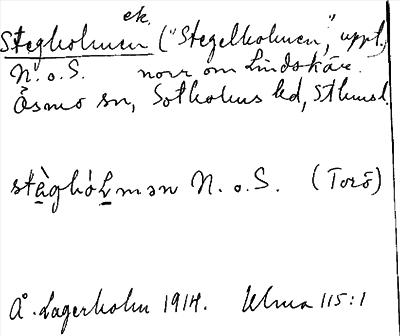 ek.
Stegholmen ("Stegelholmen," uppt.)
N. o. S. norr om Lindskär.
Ösmo sn, Sotholms hd, Sthmsl.
stàghólmən N. o. S. (Torö)
Å. Lagerholm 1914. Ulma 115:1